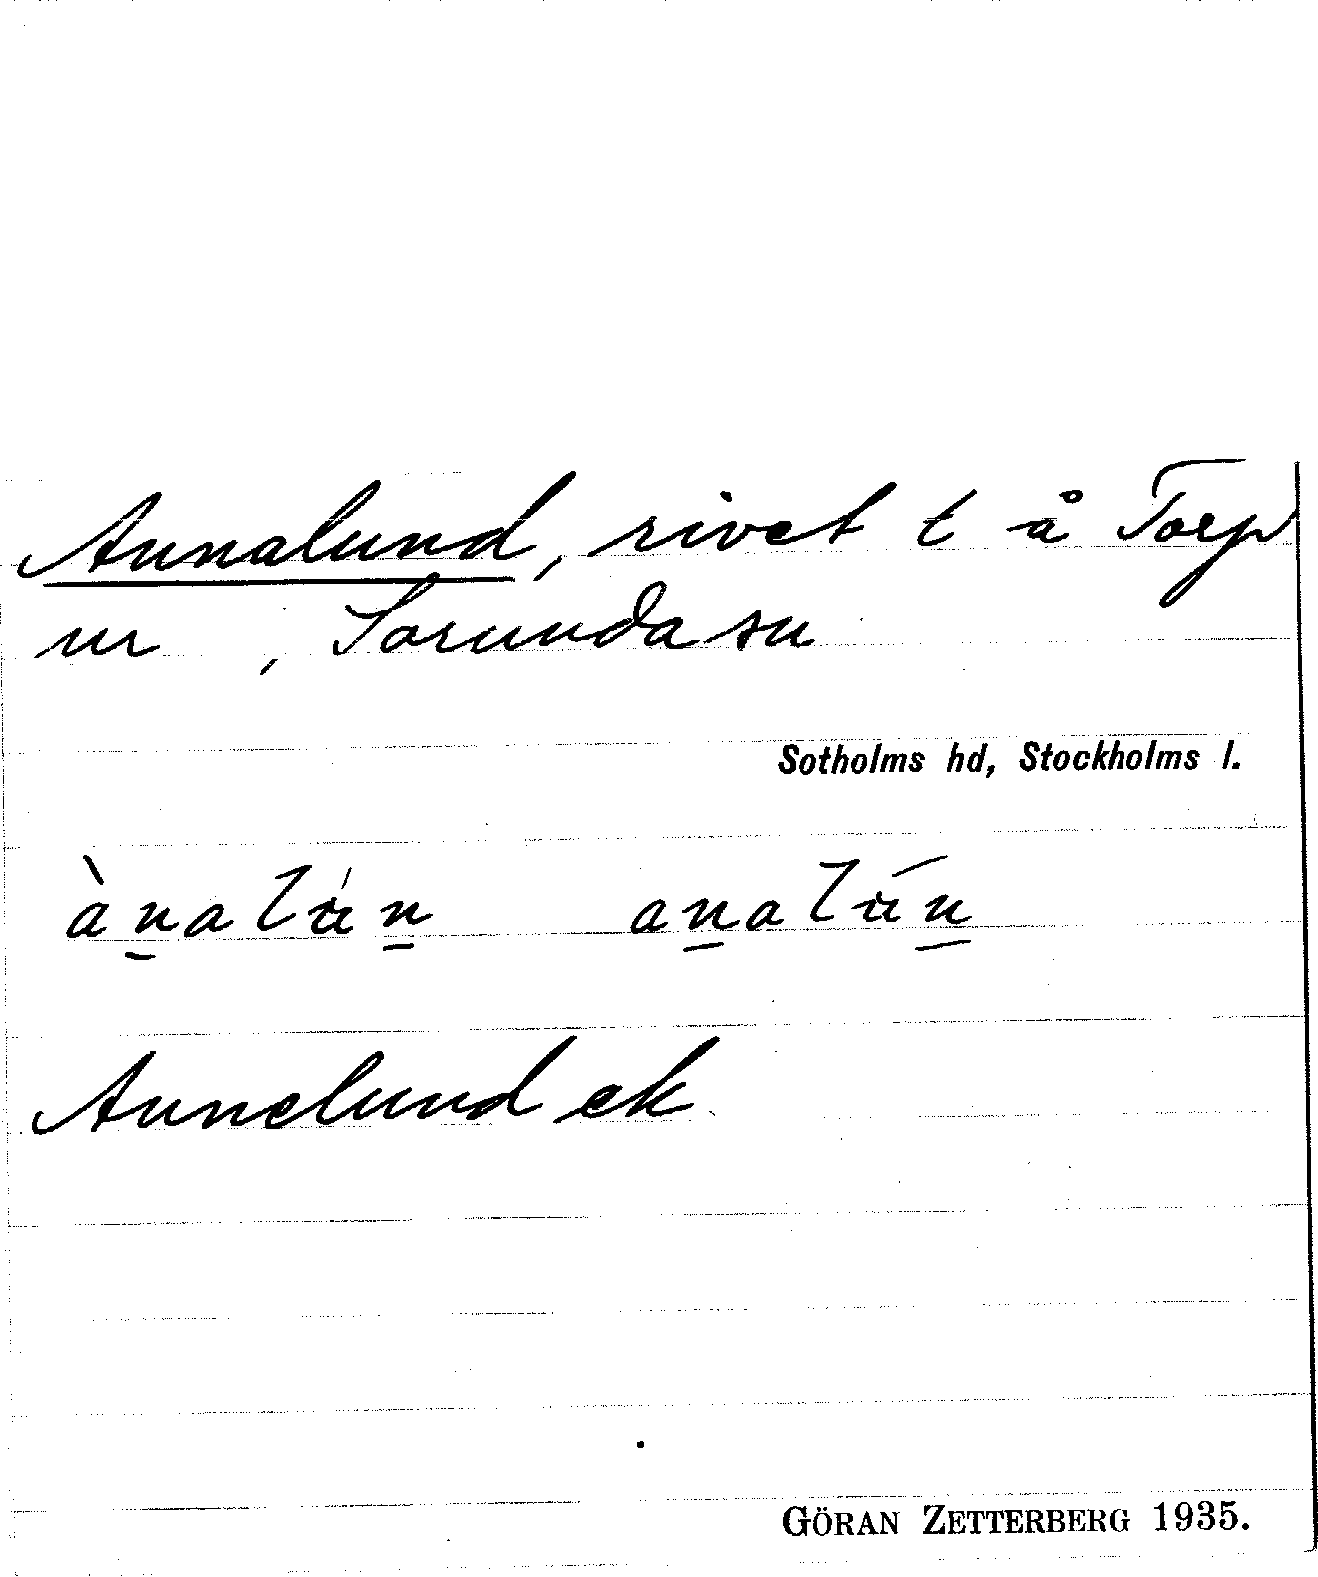 Annalund, rivet t å Torp
nr , Sorunda sn
Sotholms hd, Stockholms l.
ànalún analún
Annelund ek
GÖRAN ZETTERBERG 1935.